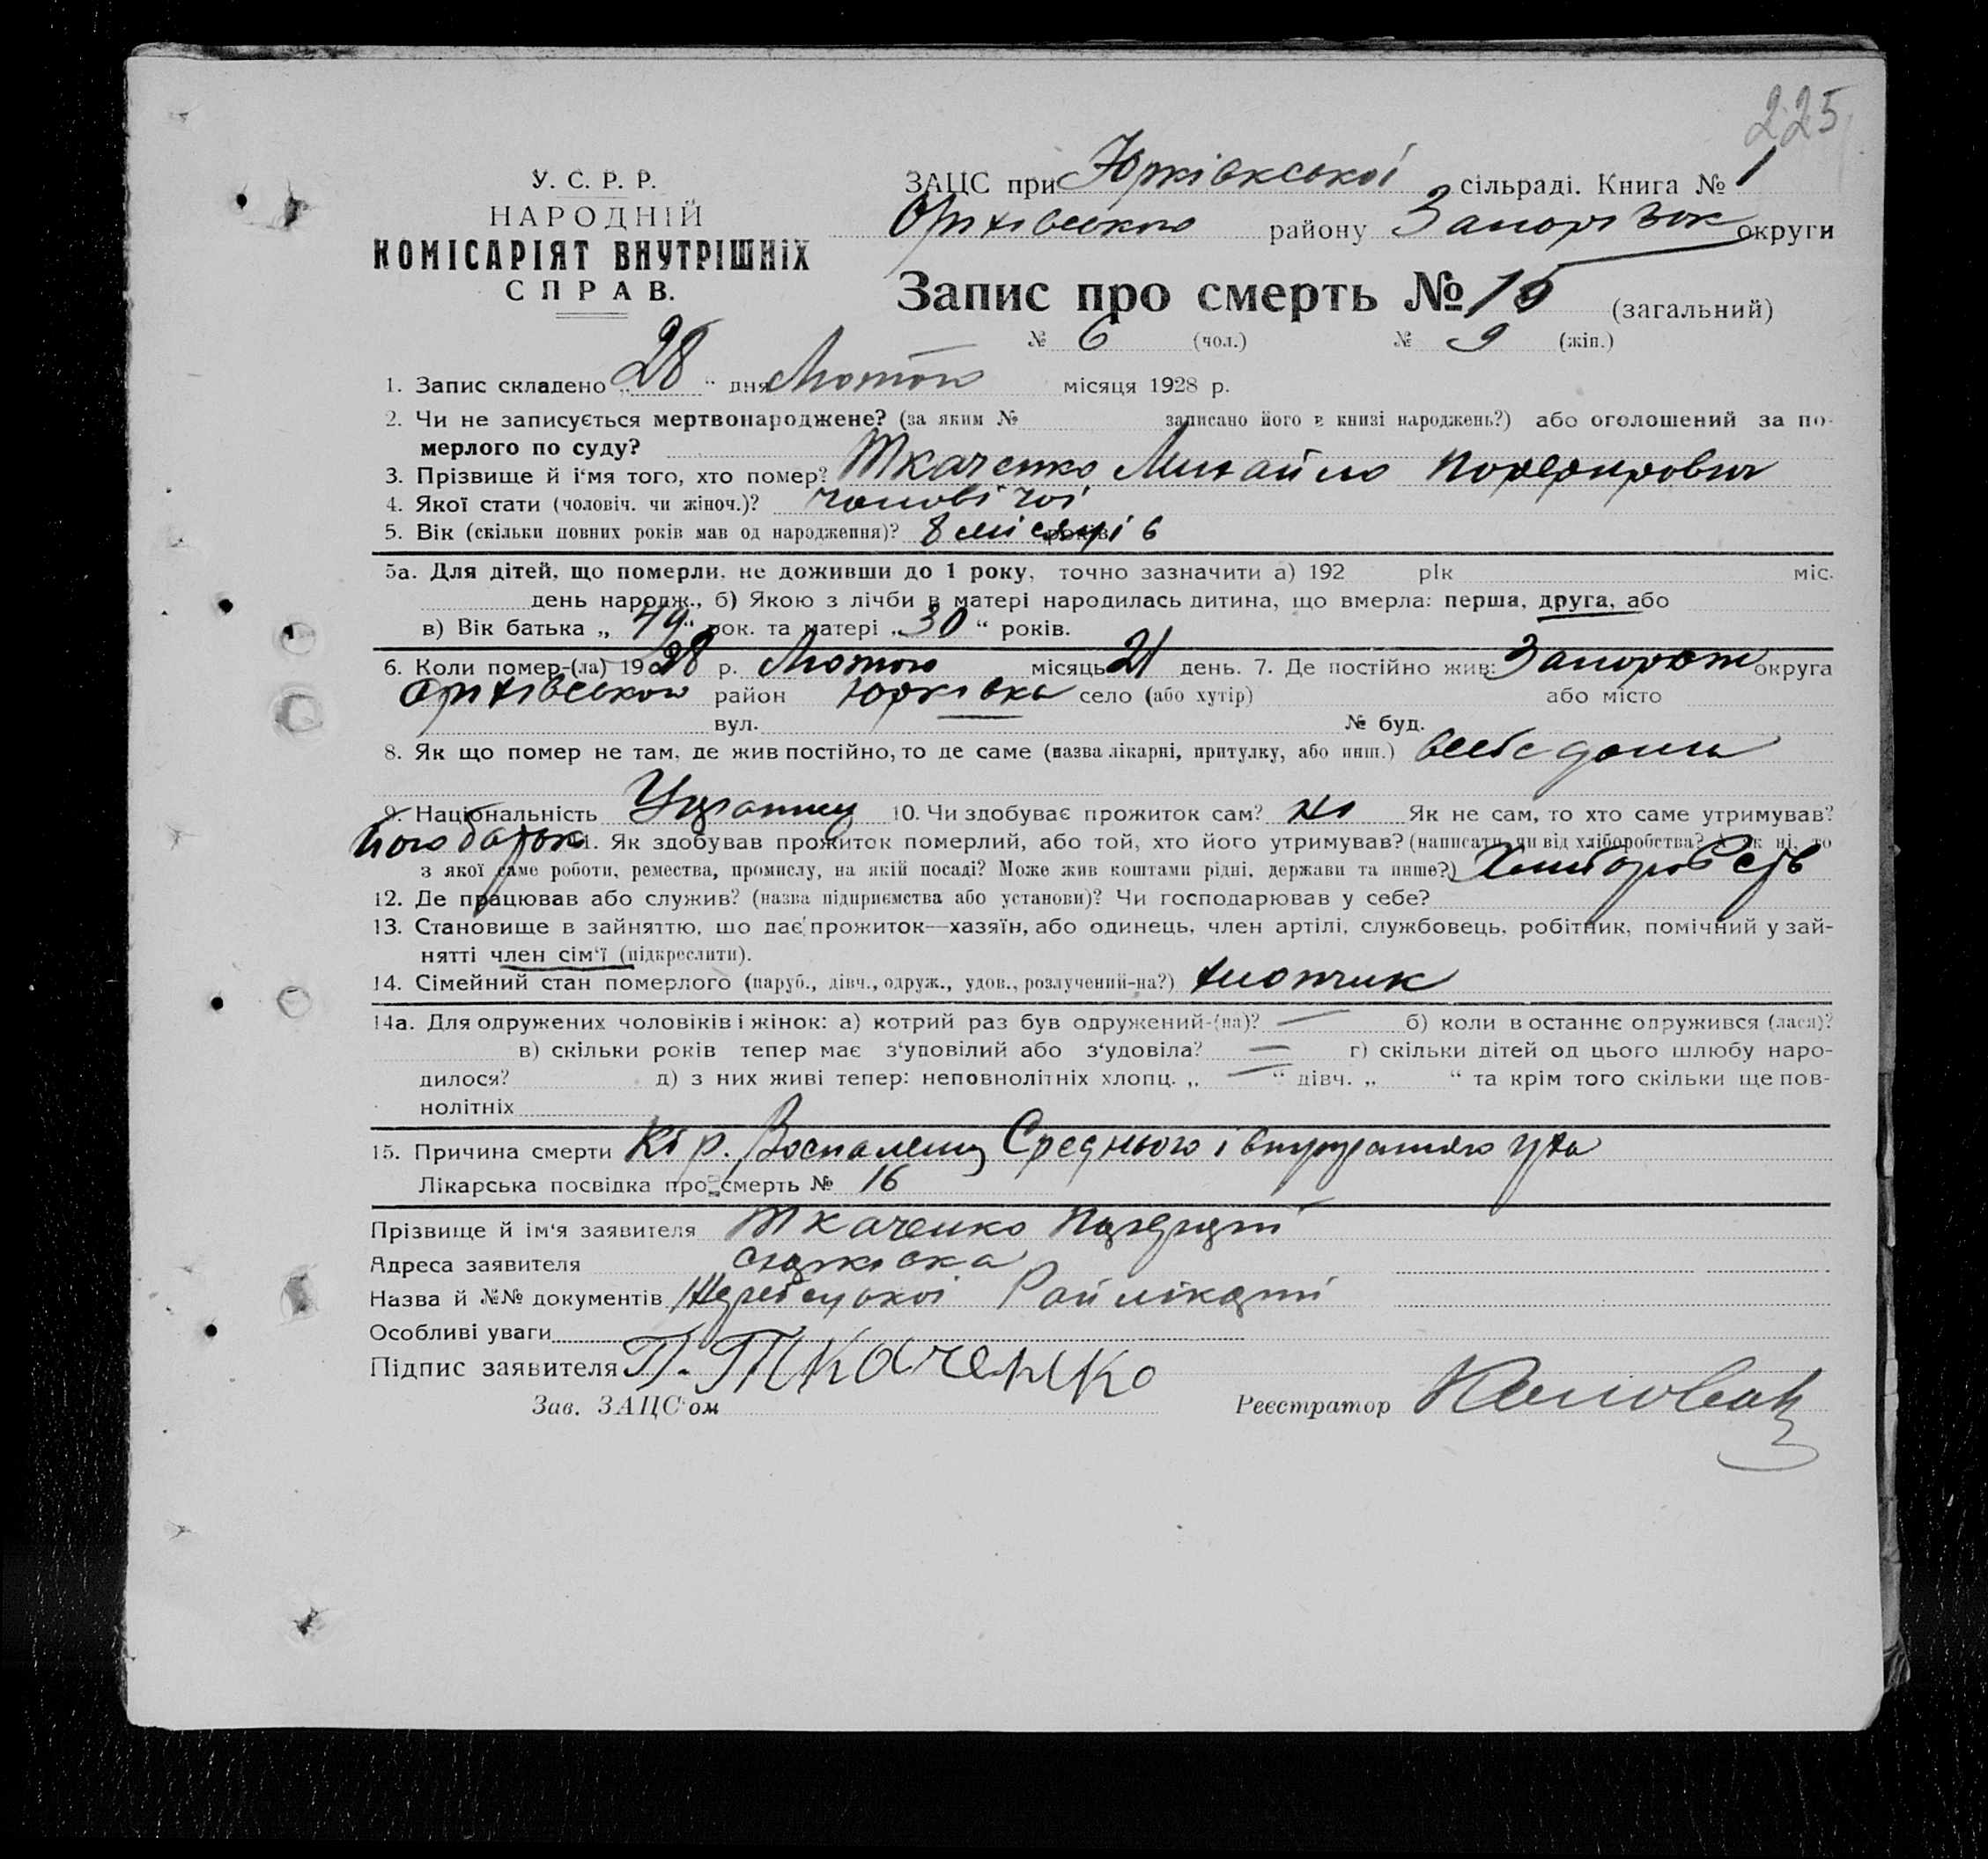 225
У. С. Р. Р.
НАРОДНІЙ
КОМІСАРІЯТ ВНУТРІШНІХ
СПРАВ.
ЗАЦС при Юрківкської сільраді. Книга № 1
Оріхівського району Запоріжок округи
Запис про смерть № 15 (загальний)
№ 6 (чол.) № 9 (жін.)
1. Запис складено „28“ дня Лютого місяця 1928 р.
2. Чи не записується мертвонароджене? (за яким № записано його в книзі народжень?) або оголошений за по-
мерлого по суду?
3. Прізвище й і'мя того, хто помер? Ткаченко Михайло Порфирович
4. Якої стати (чоловіч. чи жіноч.)? чоловічої
5. Вік (скільки повних років мав од народження)? 8 місяців
5а. Для дітей, що померли, не доживши до 1 року, точно зазначити а) 192 рік міс.
день народж., б) Якою з лічби в матері народилась дитина, що вмерла: перша, друга, або
в) Вік батька „ “ рок. та матері „30“ років.
6. Коли помер-(ла) 1928 р. Лютого місяць 21 день. 7. Де постійно жив: Запорож округа
Оріхівського район Юрківка село (або хутір) або місто
вул. № буд.
8. Як що помер не там, де жив постійно, то де саме (назва лікарні, притулку, або инш.) вебе дома
9. Національність Украинец 10. Чи здобуває прожиток сам? ні Як не сам, то хто саме утримував?
його батько 11. Як здобував прожиток померлий, або той, хто його утримував? (написати, чи від хліборобства? А як ні, то
з якої саме роботи, ремества, промислу, на якій посаді? Може жив коштами рідні, держави та инше?) Хлиборобств
12. Де працював або служив? (назва підприємства або установи)? Чи господарював у себе?
13. Становище в зайняттю, що дає прожиток—хазяїн, або одинець, член артілі, службовець, робітник, помічний у зай-
нятті член сім'ї (підкреслити).
14. Сімейний стан померлого (паруб., дівч., одруж., удов., розлучений-на?) хлопчик
14а. Для одружених чоловіків і жінок: а) котрий раз був одружений-(на)? — б) коли в останнє одружився (лася)?
в) скільки років тепер має з'уповілий або з'удовіла? — г) скільки дітей од цього шлюбу наро-
дилося? д) з них живі тепер: неповнолітніх хлопц. „ — “ дівч. „ “ та крім того скільки ще пов-
нолітніх
15. Причина смерти Кір. Воспаление Среднього і внутрішнього уха
Лікарська посвідка про смерть № 16
Прізвище й ім'я заявителя Ткаченко
Адреса заявителя Юрківка
Назва й №№ документів Жеребецької Райлікарні
Особливі уваги
Підпис заявителя П. Ткаченко
Зав. ЗАЦС'ом Реєстратор